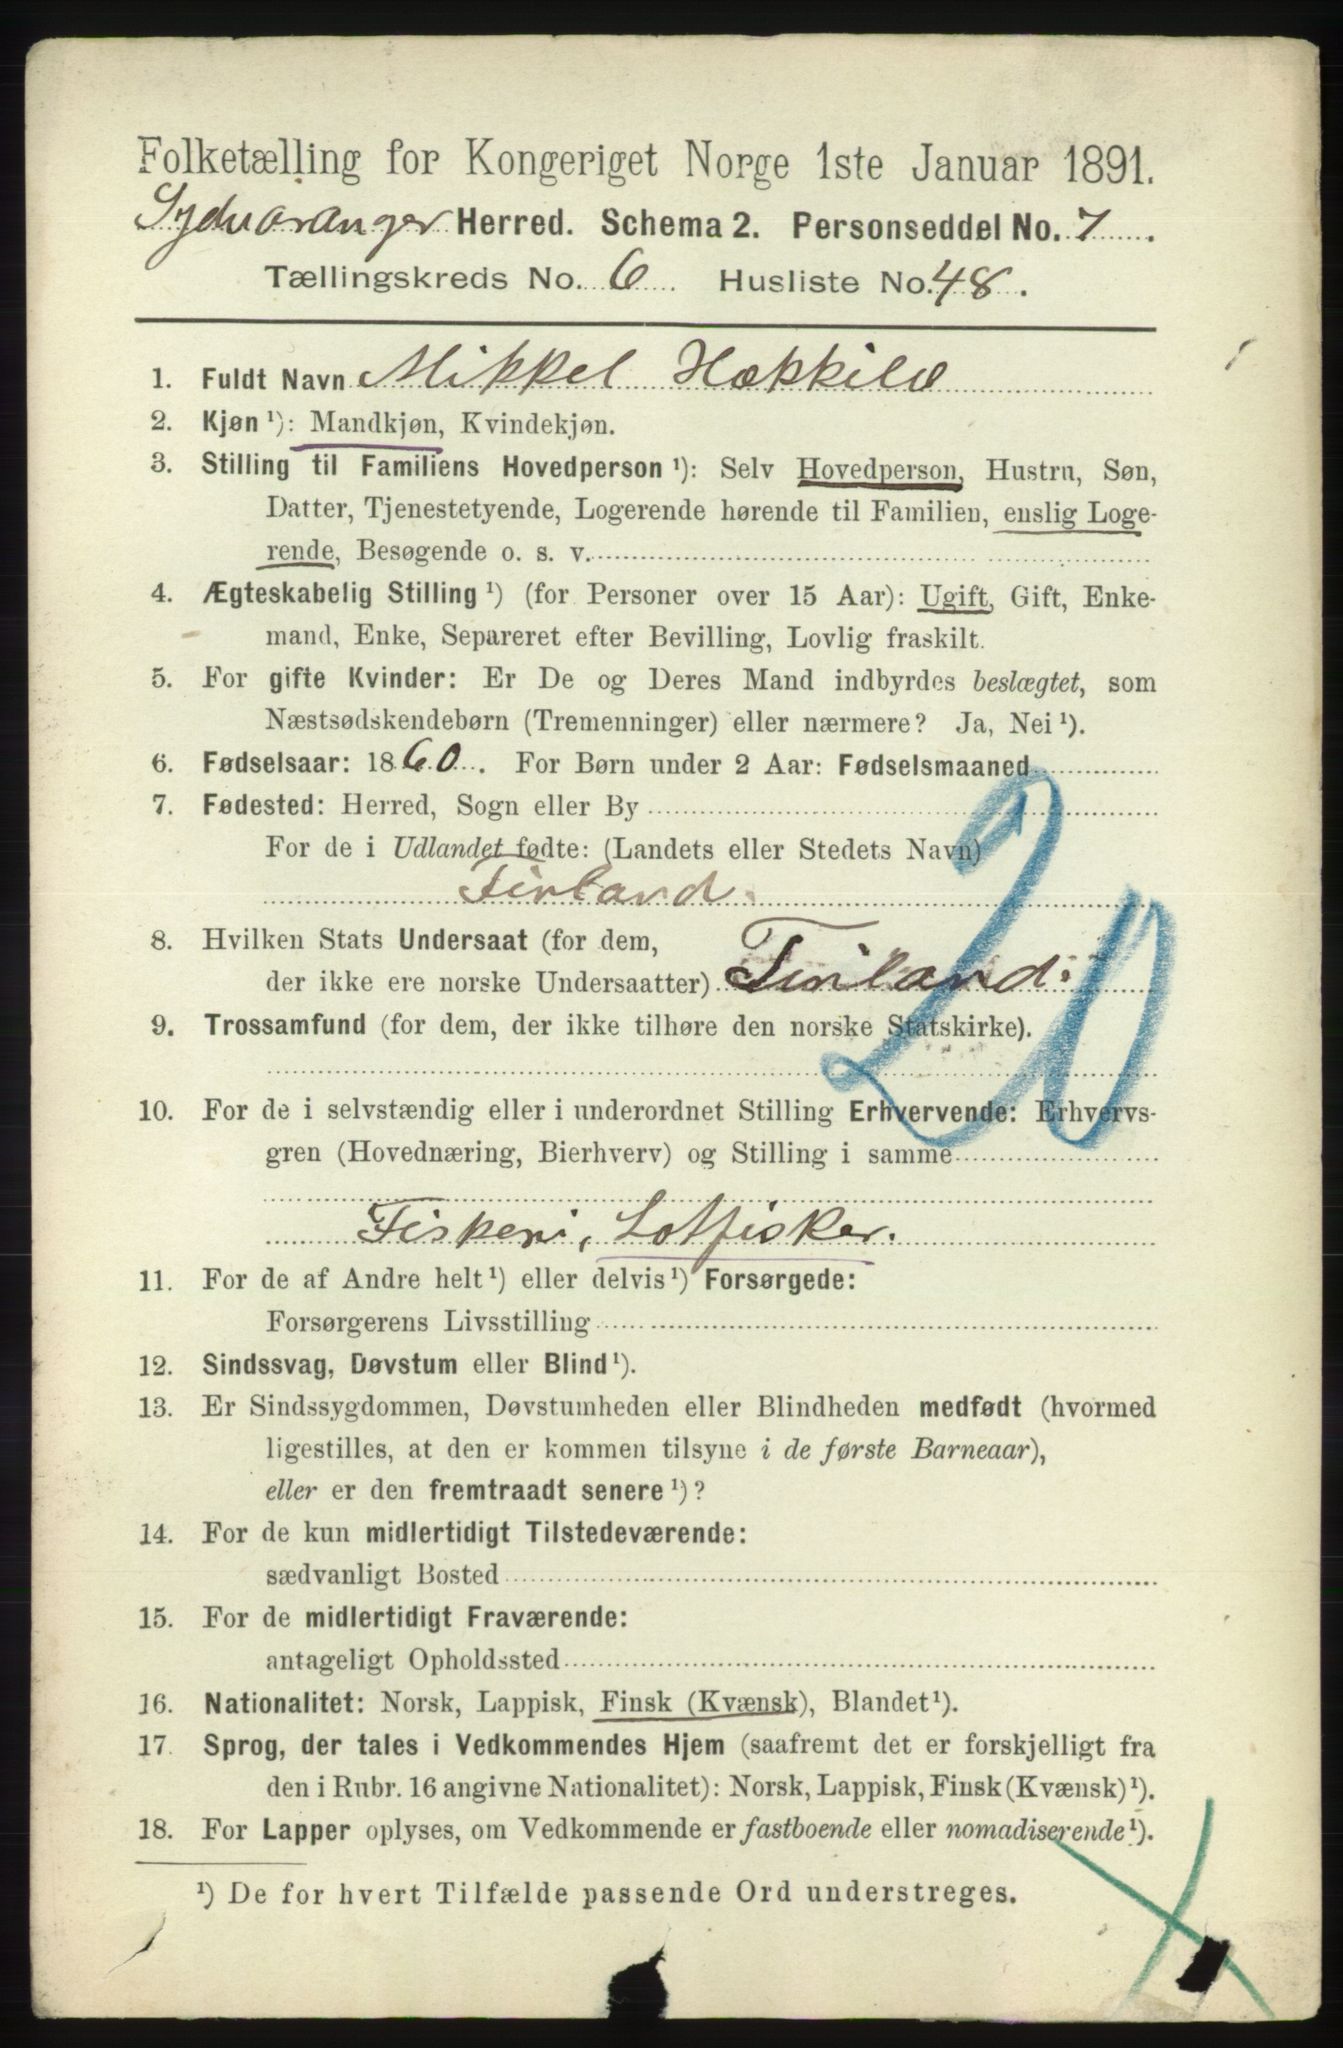 Folketælling for Kongeriget Norge 1ste Januar 1891.
Sydvaranger Herred. Schema 2. Personseddel No. 7.
Tællingskreds No. 6 Husliste No. 48.
1. Fuldt Navn Mikkel Hækkilæ
2. Kjøn ¹): Mandkjøn, Kvindekjøn.
3. Stilling til Familiens Hovedperson ¹): Selv Hovedperson, Hustru, Søn,
Datter, Tjenestetyende, Logerende hørende til Familien, enslig Loge-
rende, Besøgende o. s. v.
4. Ægteskabelig Stilling ¹) (for Personer over 15 Aar): Ugift, Gift, Enke-
mand, Enke, Separeret efter Bevilling, Lovlig fraskilt.
5. For gifte Kvinder: Er De og Deres Mand indbyrdes beslægtet, som
Næstsødskendebørn (Tremenninger) eller nærmere? Ja, Nei ¹).
6. Fødselsaar: 1860. For Børn under 2 Aar: Fødselsmaaned
7. Fødested: Herred, Sogn eller By
For de i Udlandet fødte: (Landets eller Stedets Navn)
Finland.
8. Hvilken Stats Undersaat (for dem,
der ikke ere norske Undersaatter) Finland.
20
9. Trossamfund (for dem, der ikke tilhøre den norske Statskirke).
10. For de i selvstændig eller i underordnet Stilling Erhvervende: Erhvervs-
gren (Hovednæring, Bierhverv) og Stilling i samme
Fiskeri, Lotfisker.
11. For de af Andre helt ¹) eller delvis ¹) Forsørgede:
Forsørgerens Livsstilling
12. Sindssvag, Døvstum eller Blind ¹).
13. Er Sindssygdommen, Døvstumheden eller Blindheden medfødt (hvormed
ligestilles, at den er kommen tilsyne i de første Barneaar),
eller er den fremtraadt senere ¹)?
14. For de kun midlertidigt Tilstedeværende:
sædvanligt Bosted
15. For de midlertidigt Fraværende:
antageligt Opholdssted
16. Nationalitet: Norsk, Lappisk, Finsk (Kvænsk), Blandet ¹).
17. Sprog, der tales i Vedkommendes Hjem (saafremt det er forskjelligt fra
den i Rubr. 16 angivne Nationalitet): Norsk, Lappisk, Finsk (Kvænsk) ¹).
18. For Lapper oplyses, om Vedkommende er fastboende eller nomadiserende ¹).
¹) De for hvert Tilfælde passende Ord understreges.